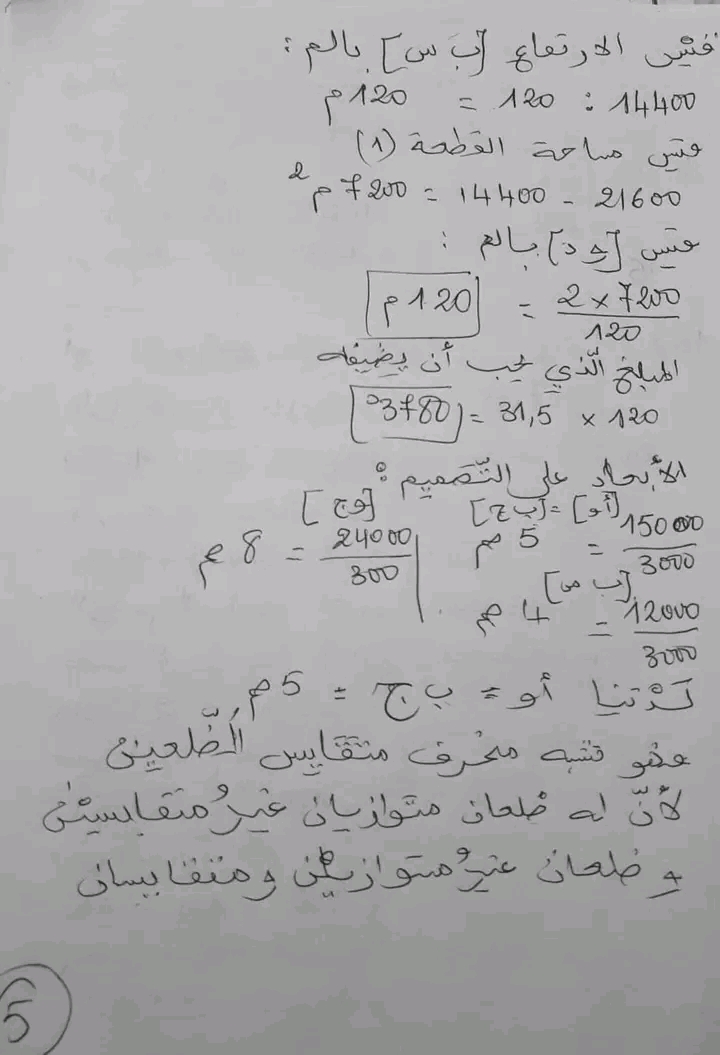 فقيس الارتفاع [ب س] بالم :
14400 : 120 = 120 م
فقيس مساحة القطعة (1)
21600 - 14400 = 7200 م2
فقيس [و د] بالم :
2 × 7200 / 120 = 120 م
المبلغ الذي يجب أن يضيفه
120 × 31,5 = 3780 د
الأبعاد على التّصميم :
[أو] = [ب ج] [و ج]
15000 / 3000 = 5 صم 24000 / 300 = 8 صم
[ب س]
12000 / 3000 = 4 صم
لدينا أو = ب ج = 5 صم
فهو شبه منحرف متقايس الضّلعين
لأنّ له ضلعان متوازيان غيرُ متقايسين
و ضلعان غيرُ متوازيين ومتقايسان
5